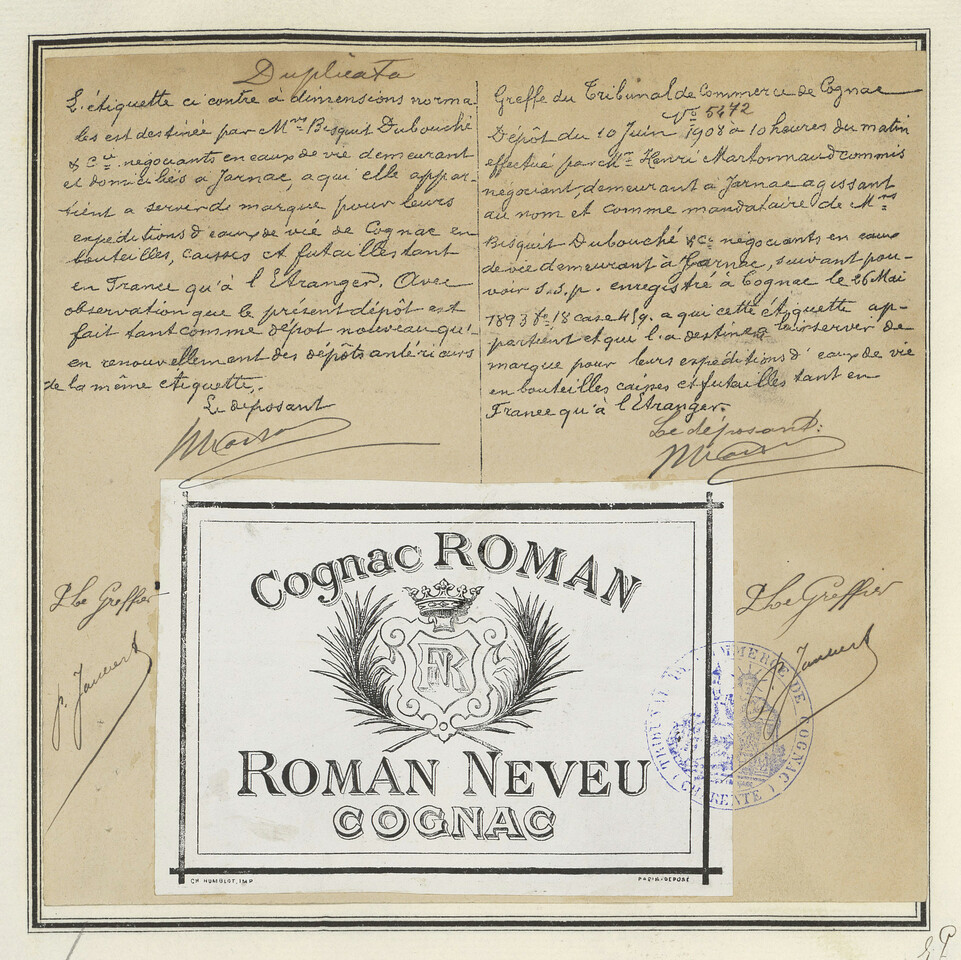 Duplicata
L'étiquette ci contre à dimensions norma-
les est destinée par Mrs Bisquit Dubouché
& Cie négociants en eaux de vie demeurant
et domiciliés à Jarnac, a qui elle appar-
tient a servir de marque pour leurs
expéditions d'eaux de vie de Cognac en
bouteilles, caisses et futailles tant
en France qu'à l'Etranger. Avec
observation que le présent dépôt est
fait tant comme dépôt nouveau qu'
en renouvellement des dépôts antérieurs
de la même étiquette.
Le déposant
Greffe du Tribunal de Commerce de Cognac
No 5472
Dépôt du 10 Juin 1908 à 10 heures du matin
effectué par Mr Henri Martonnaud commis
négociant demeurant à Jarnac agissant
au nom et comme mandataire de Mrs
Bisquit Dubouché & Cie négociants en eaux
de vie demeurant à Jarnac, suivant pou-
voir s.s.p. enregistré à Cognac le 26 Mai
1893 fo 18 case 459. a qui cette étiquette ap-
partient et qui l'a destinée a leur servir de
marque pour leurs expéditions d'eaux de vie
en bouteilles caisses et futailles tant en
France qu'à l'Etranger.
Le déposant:
Cognac ROMAN
RN
ROMAN NEVEU
COGNAC
CH. HUMBLOT, IMP
PARIS-DÉPOSÉ
P. Le Greffier
P. Le Greffier
TRIBUNAL DE COMMERCE DE COGNAC
(CHARENTE)